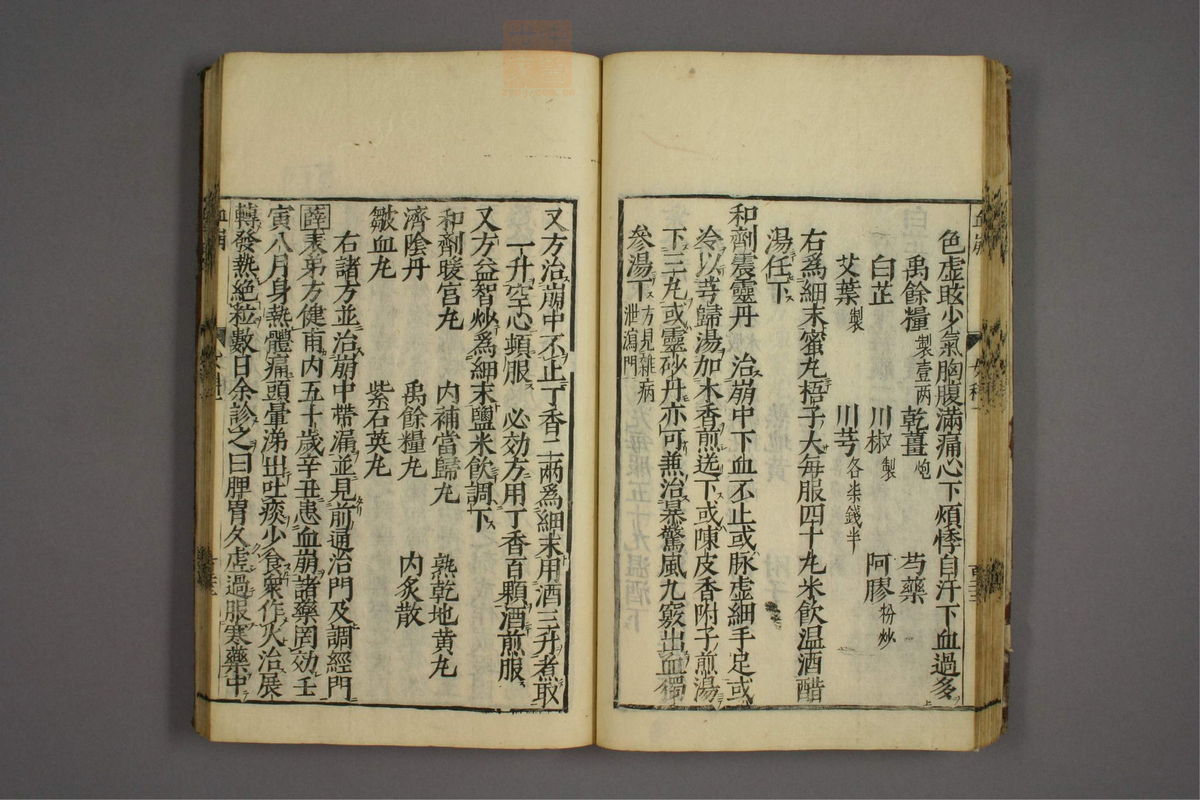 色虛眩少氣胸腹滿痛心下煩悸自汗下血過多
禹餘糧製壹两 乾薑炮 芍藥
白芷 川椒製 阿膠粉炒
艾葉製 川芎各柒錢半
右爲細末蜜丸梧子大每服四十丸米飲温酒醋
湯任下
和劑震靈丹 治崩中下血不止或脉虛細手足或
冷以芎歸湯加木香煎送下或陳皮香附子煎湯
下三丸或靈砂丹亦可兼治暴驚風九竅出血獨
參湯下方見雜病泄瀉門
又方治崩中不止丁香二兩爲細末用酒三升煮取
一升空心頓服 必効方用丁香百顆酒煎服
又方益智炒爲細末鹽米飲調下
和劑暖宮丸 内補當歸丸 熟乾地黄丸
濟陰丹 禹餘糧丸 内炙散
皺血丸 紫石英丸
右諸方並治崩中帶漏並見前通治門及調經門
薛表弟方健甫内五十歲辛丑患血崩諸藥罔効壬
寅八月身熱體痛頭暈涕出吐痰少食衆作火治展
轉發熱絶粒數日余診之曰脾胃久虛過服寒藥中
血崩